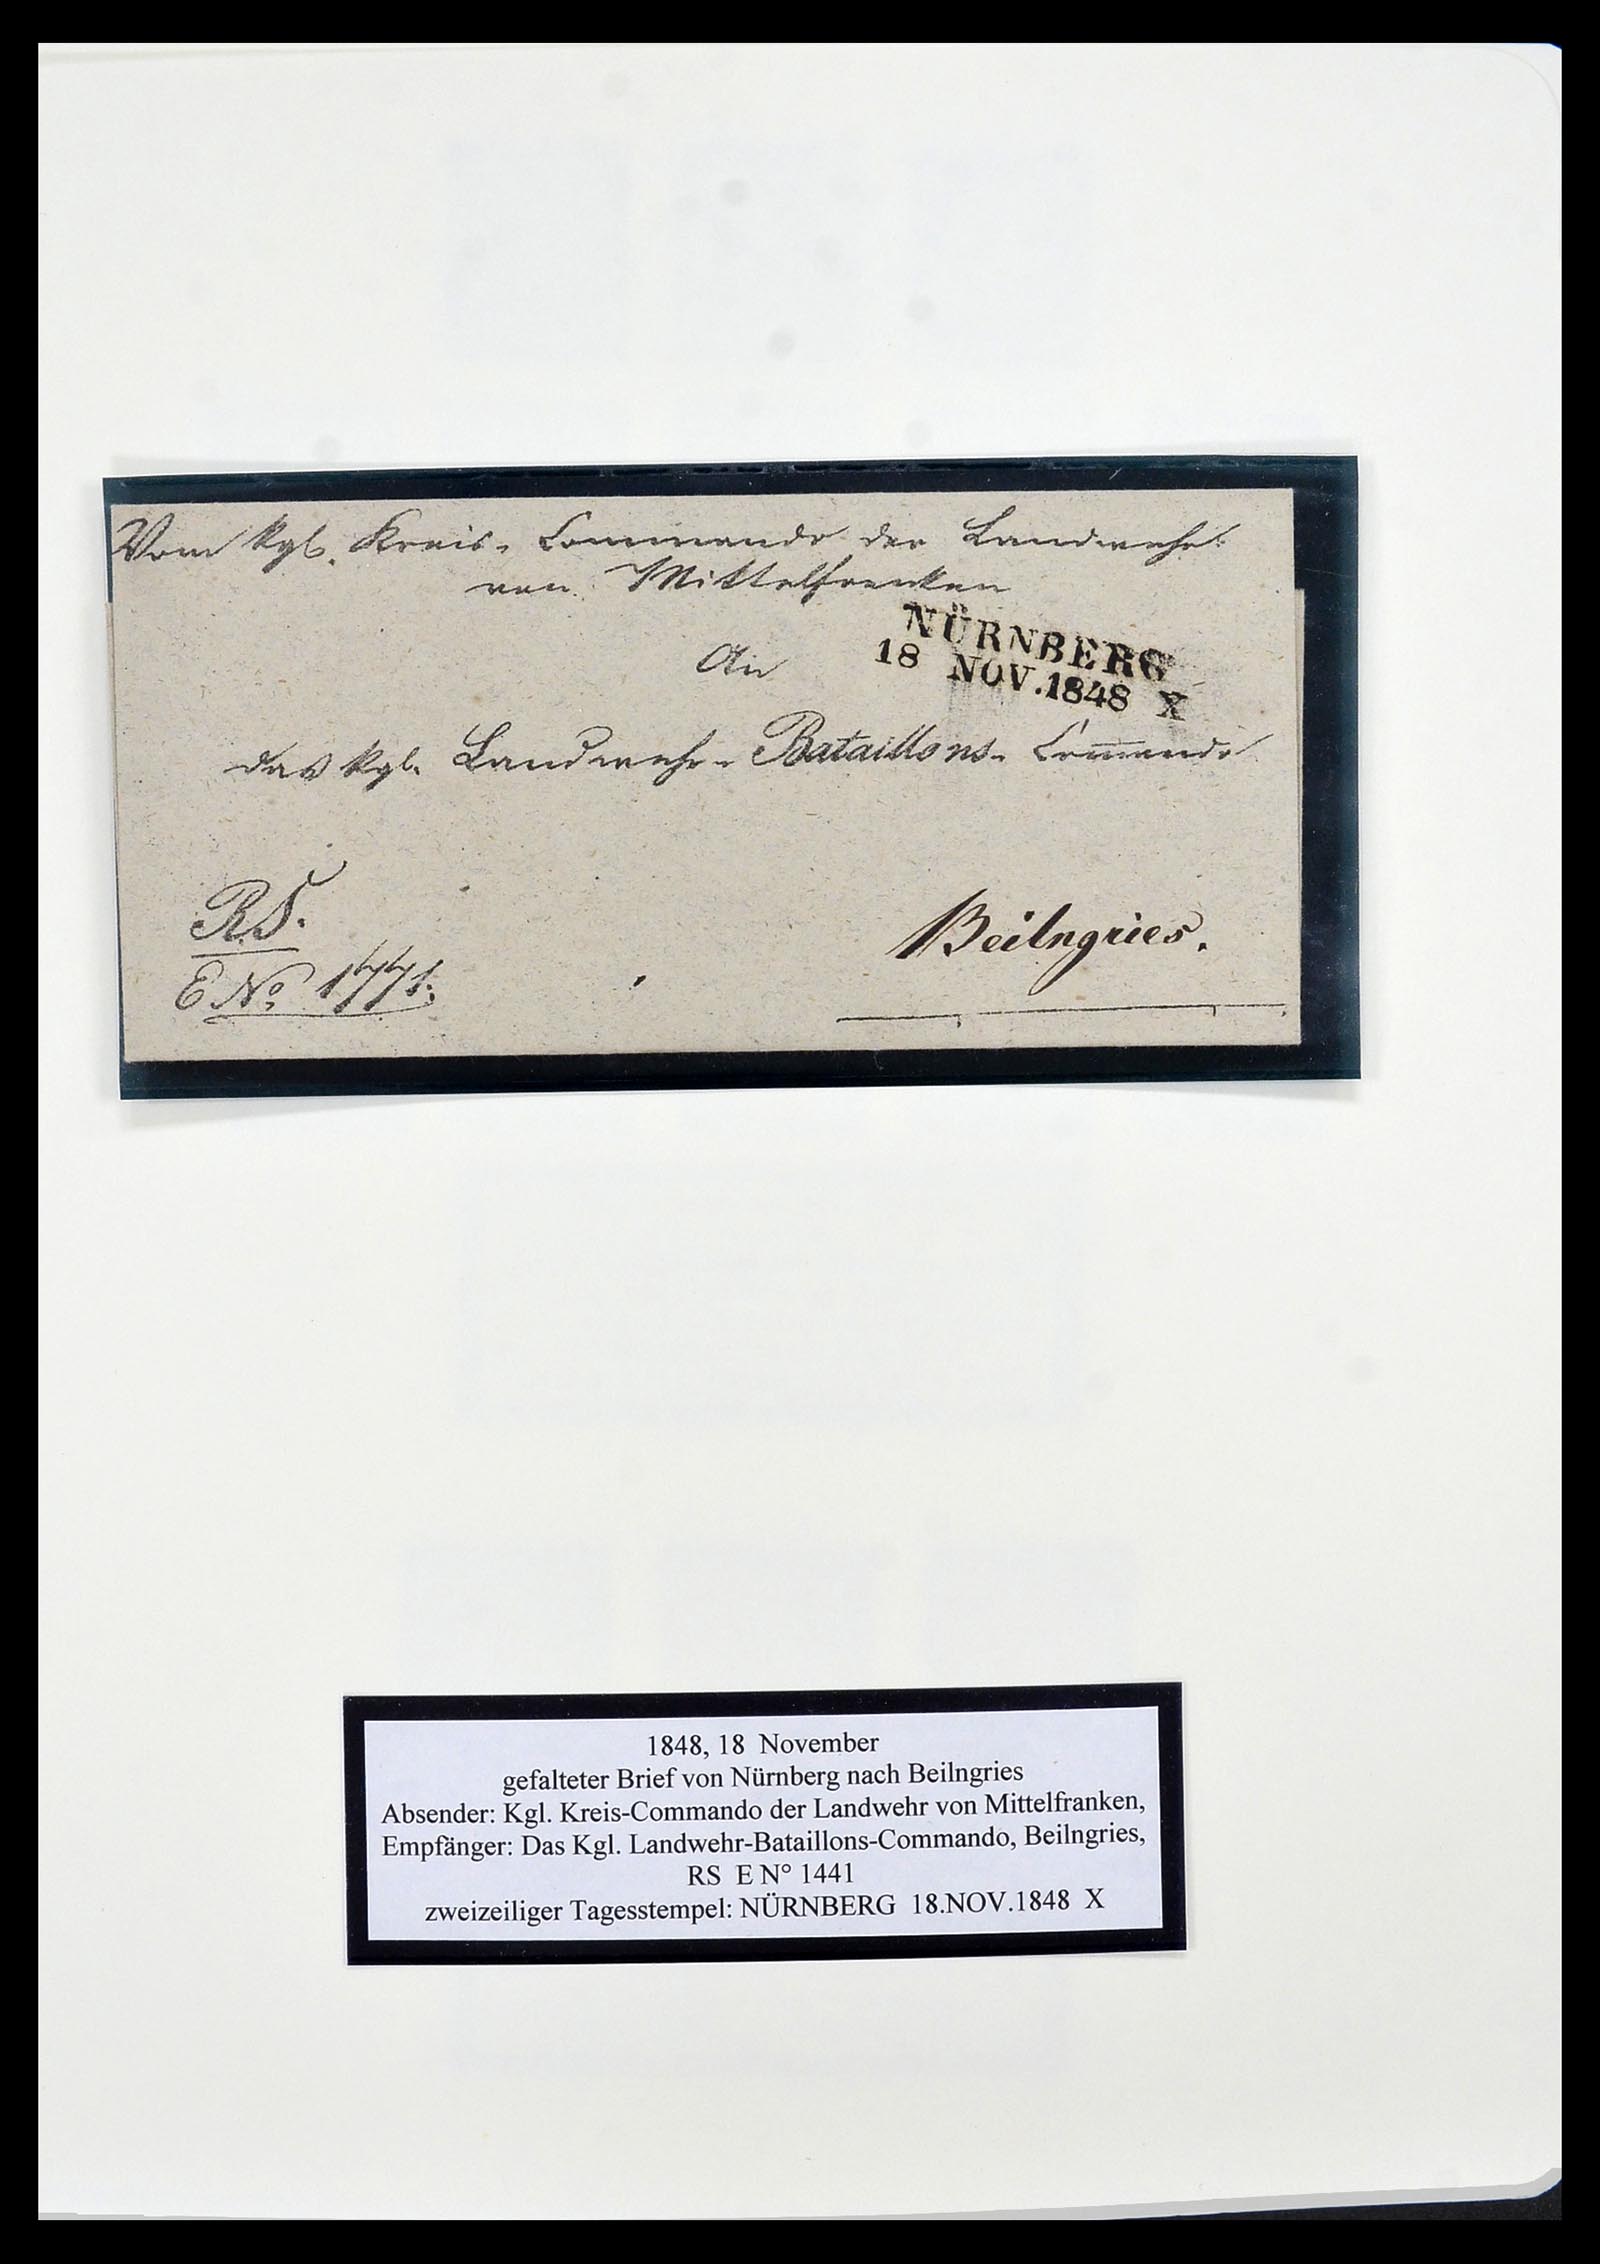 Vom kgl. Kreis-Commando der Landwehr
von Mittelfranken
An
NÜRNBERG
18 NOV.1848 X
das kgl. Landwehr-Bataillons-Commando
RS.
E No 1441.
Beilngries.
1848, 18 November
gefalteter Brief von Nürnberg nach Beilngries
Absender: Kgl. Kreis-Commando der Landwehr von Mittelfranken,
Empfänger: Das Kgl. Landwehr-Bataillons-Commando, Beilngries,
RS E N° 1441
zweizeiliger Tagesstempel: NÜRNBERG 18.NOV.1848 X